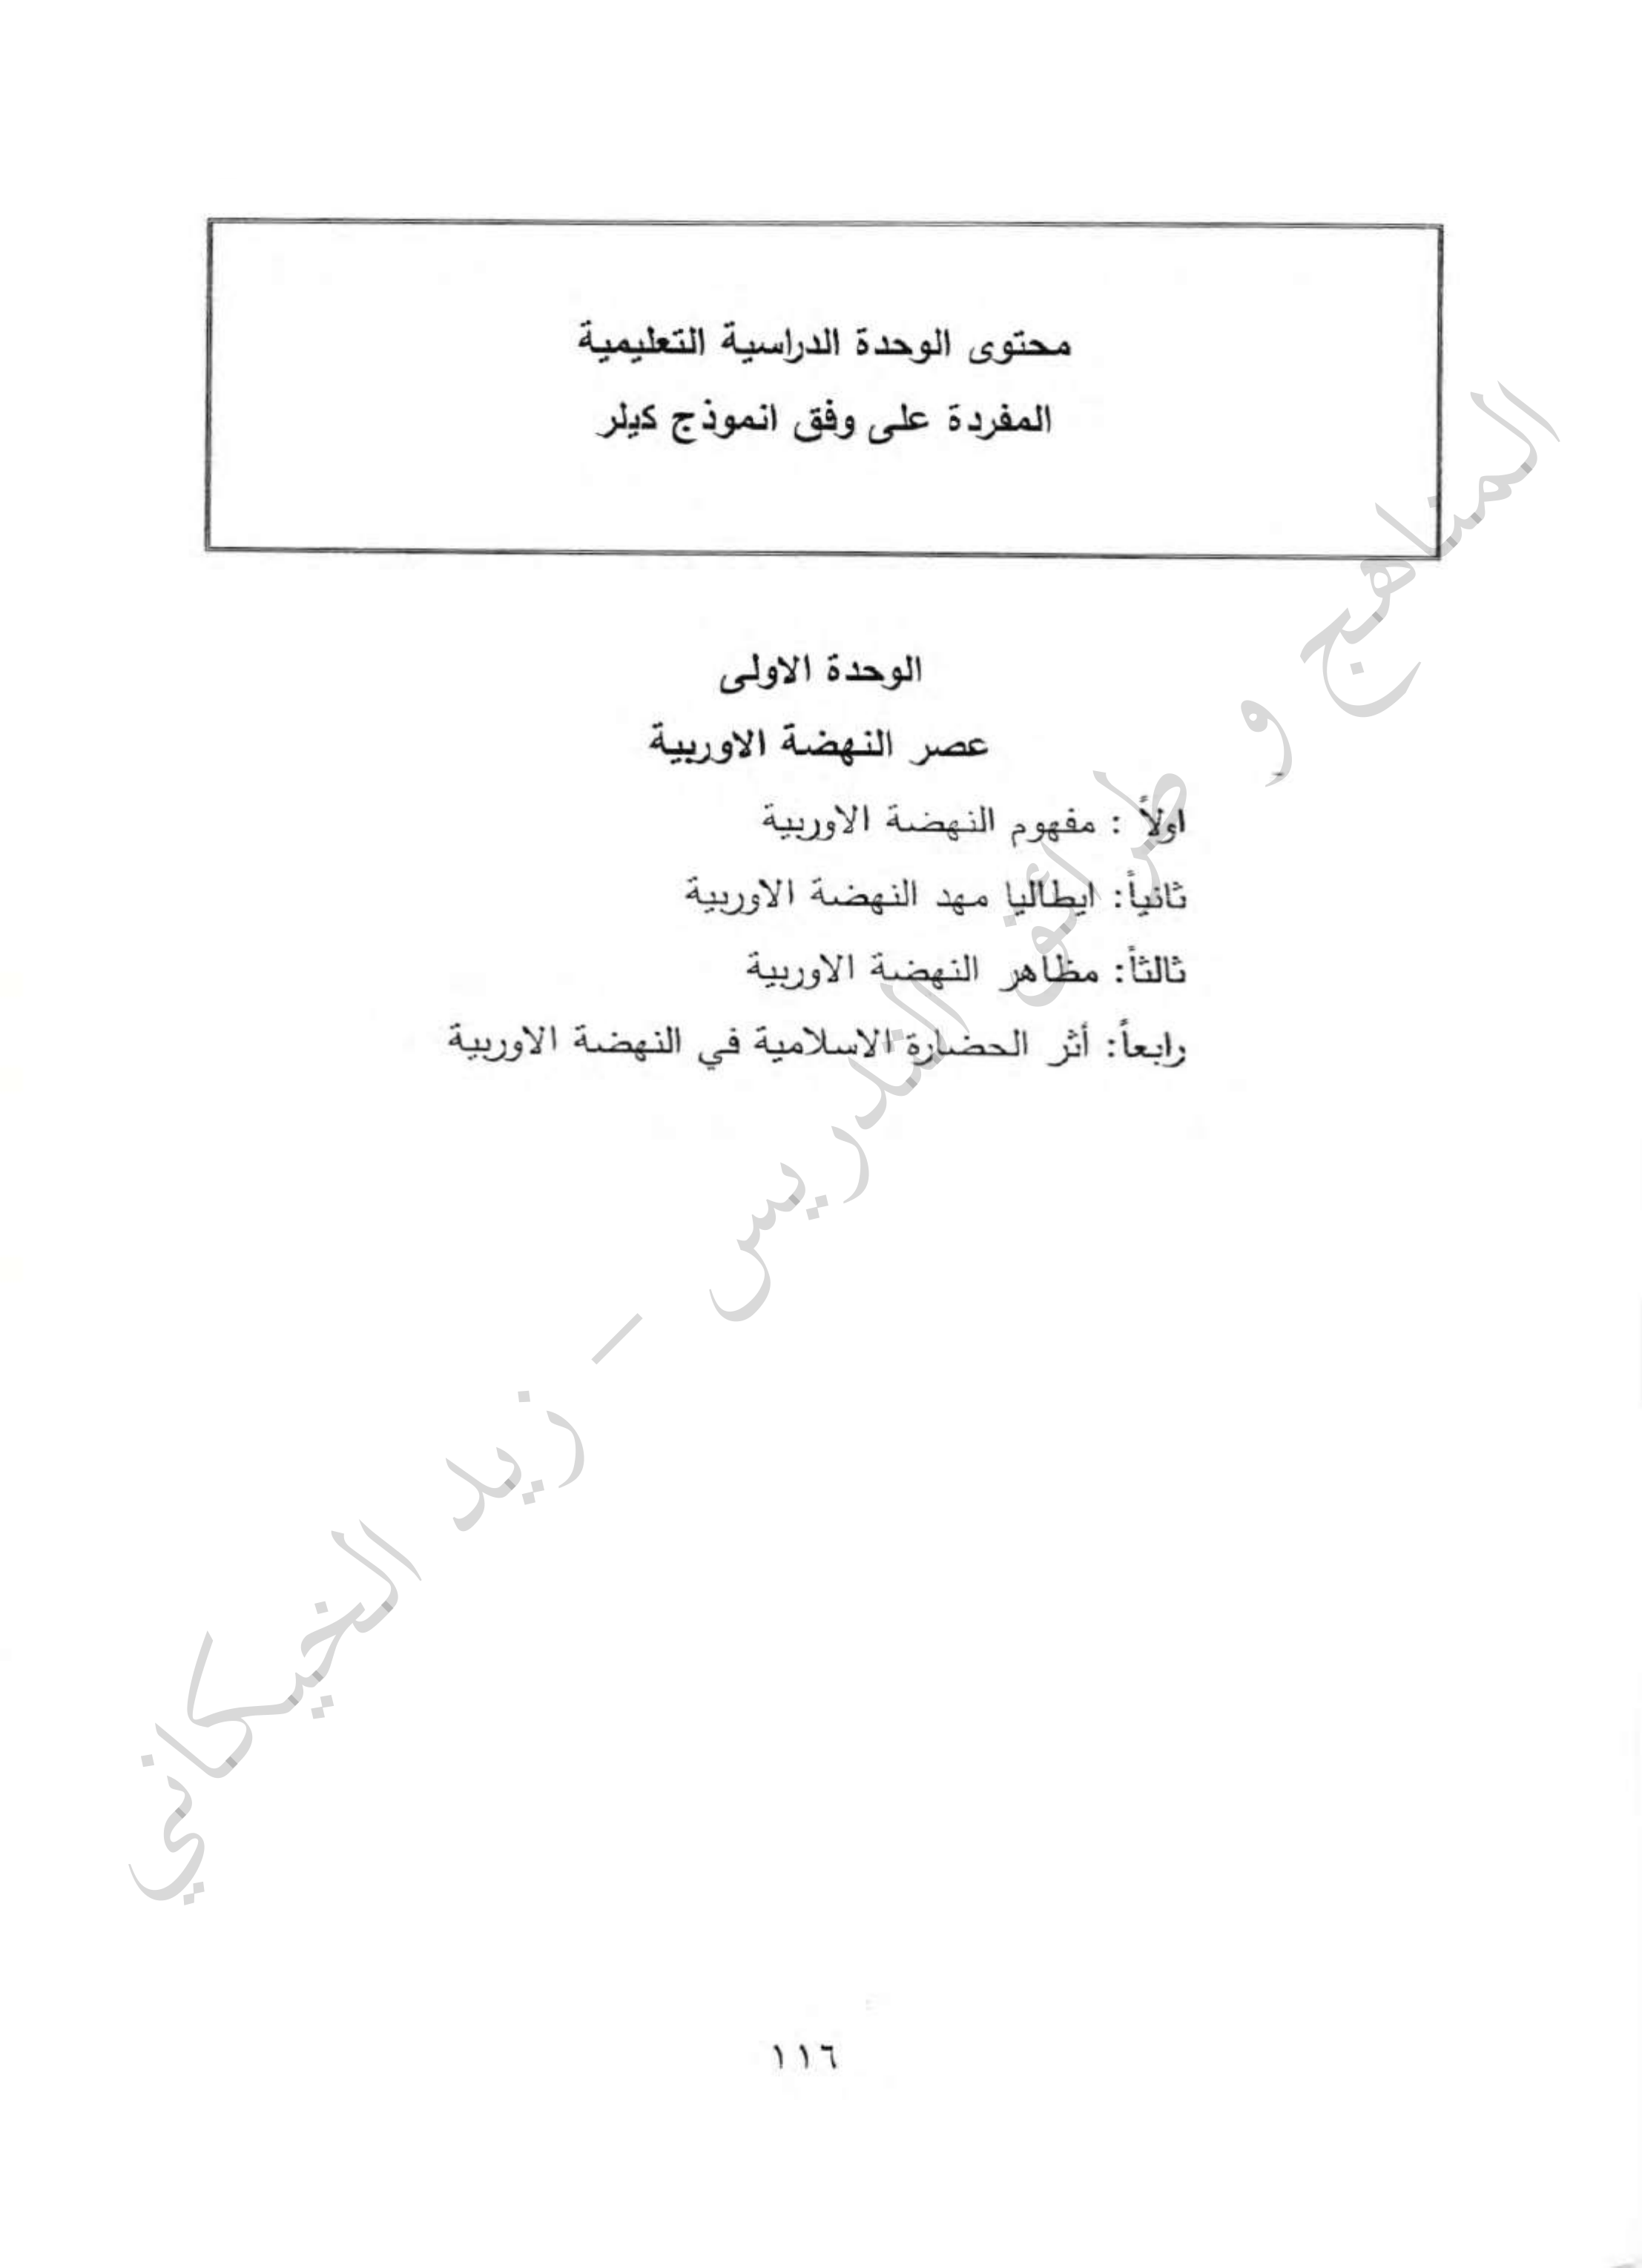 محتوى الوحدة الدراسية التعليمية
المفردة على وفق انموذج كيلر
الوحدة الاولى
عصر النهضة الاوربية
اولاً : مفهوم النهضة الاوربية
ثانياً: ايطاليا مهد النهضة الاوربية
ثالثاً: مظاهر النهضة الاوربية
رابعاً: أثر الحضارة الاسلامية في النهضة الاوربية
المناهج و طرائق التدريس – زيد الخيكاني
١١٦